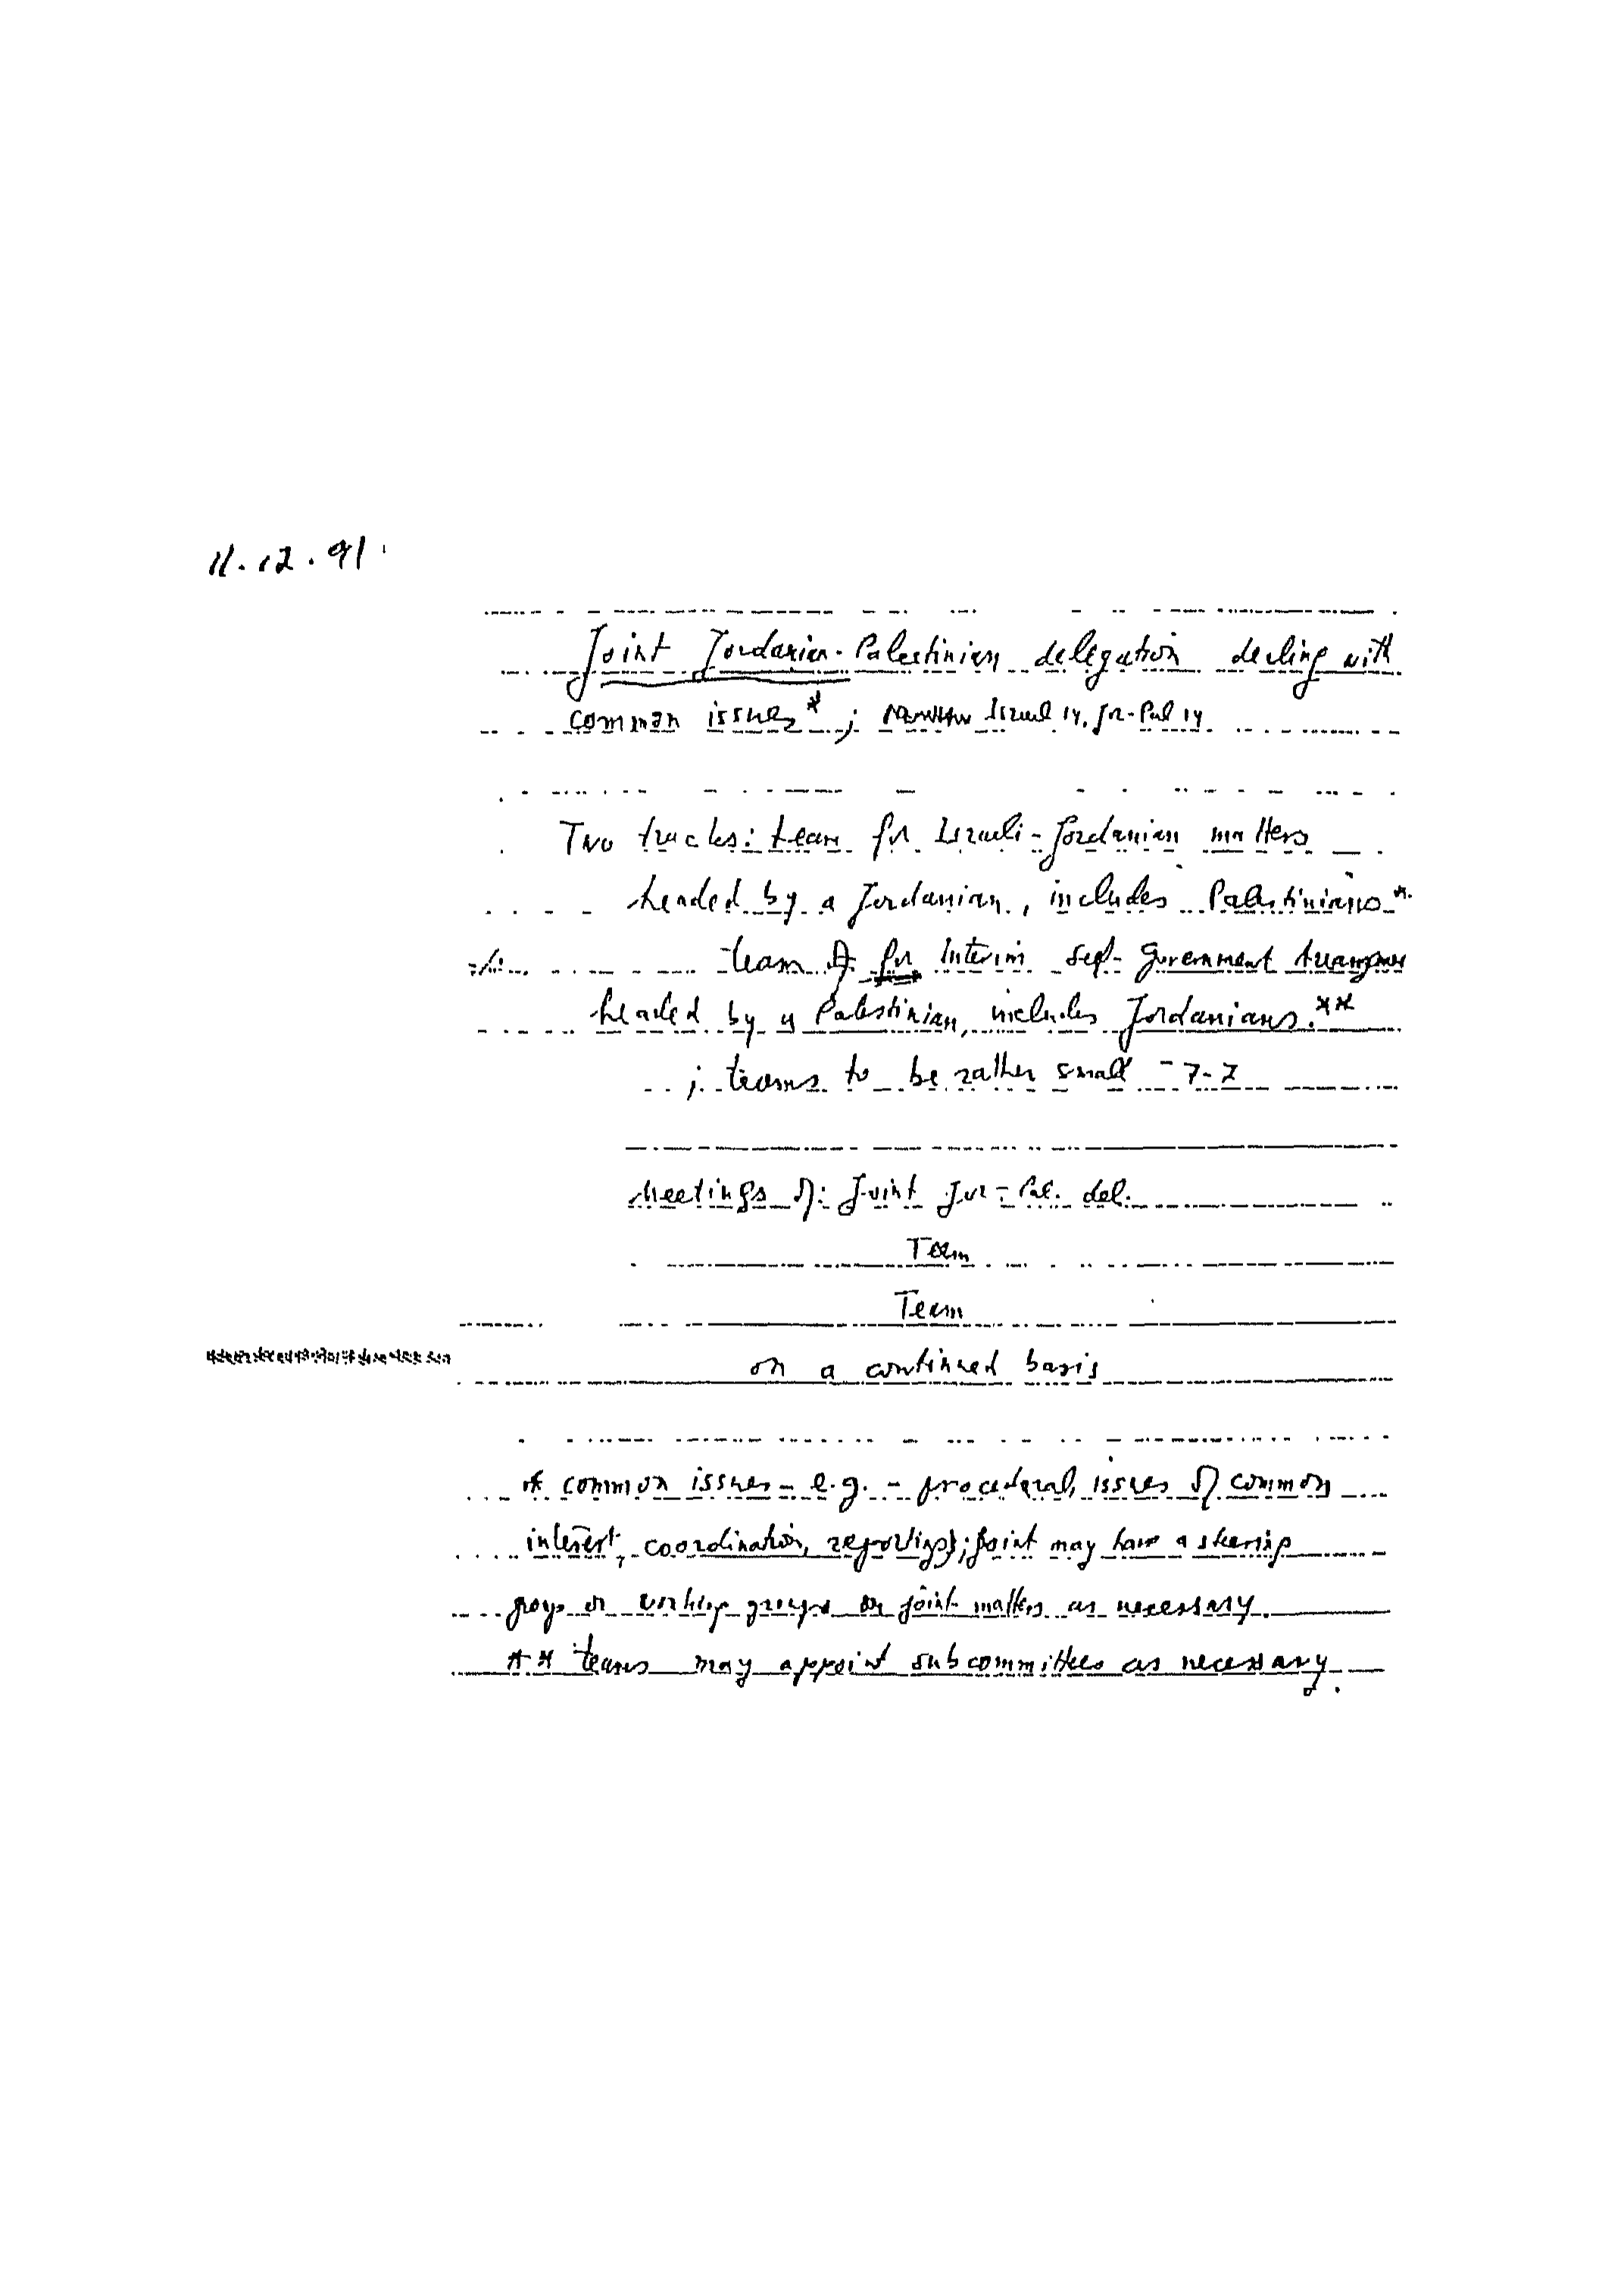 11.12.91.
Joint Jordanian-Palestinian delegation dealing with
common issues*; Israel 14, Jr-Pal 14
Two tracks: team for Israeli-Jordanian matters
headed by a Jordanian, includes Palestinians**
team for Interim self-Government Arrangements
headed by a Palestinian, includes Jordanians.**
; teams to be rather small - 7-7
Meetings of: Joint Jor-Pal. del.
Team
Team
on a continued basis
* common issues - e.g. - procedural, issues of common
interest, coordination, reporting; joint may have a steering
group or working groups on joint matters as necessary.
** teams may appoint subcommittees as necessary.